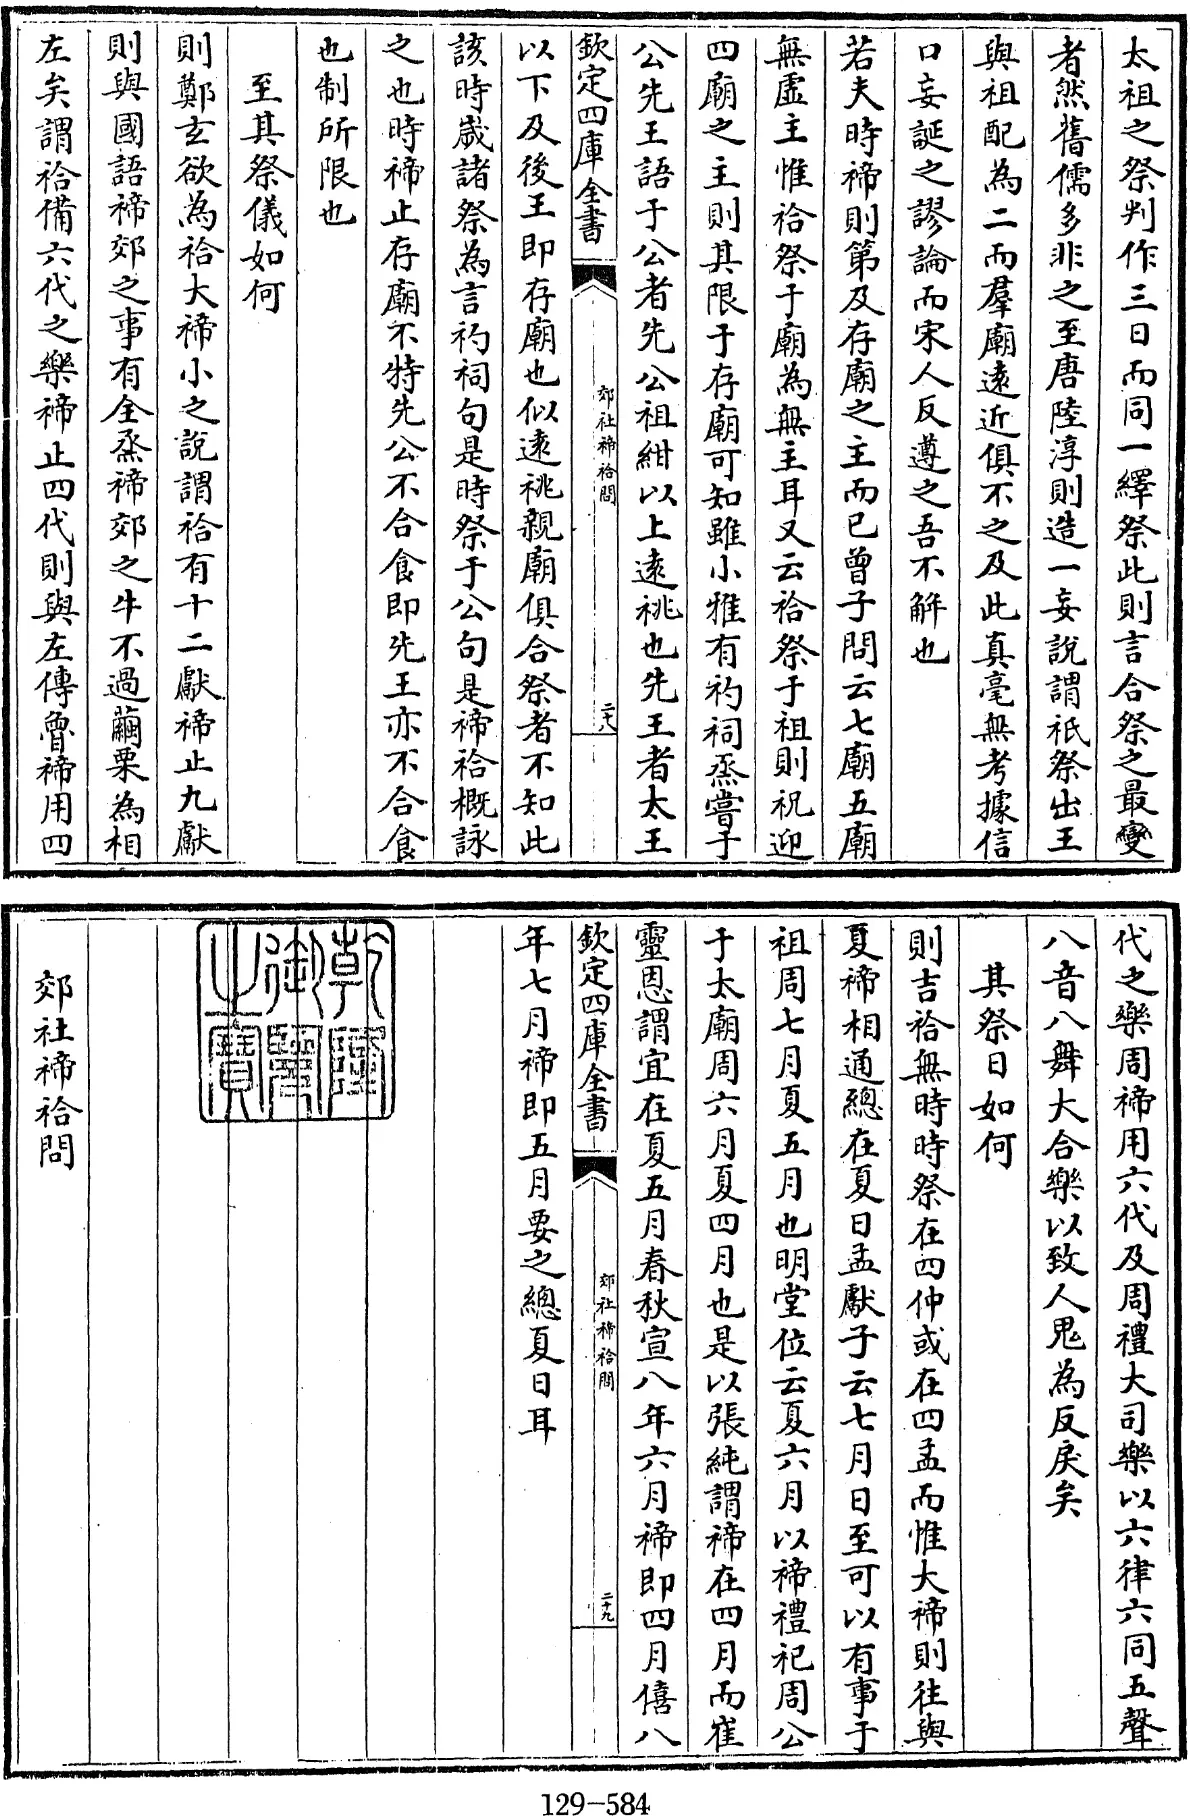 太祖之祭判作三日而同一繹祭此則言合祭之最變
者然舊儒多非之至唐陸淳則造一妄說謂祇祭出王
與祖配為二而羣廟遠近俱不之及此真毫無考據信
口妄誕之謬論而宋人反遵之吾不解也
若夫時禘則第及存廟之主而已曾子問云七廟五廟
無虛主惟祫祭于廟為無主耳又云祫祭于祖則祝迎
四廟之主則其限于存廟可知雖小雅有礿祠烝嘗于
公先王語于公者先公祖紺以上遠祧也先王者太王
欽定四庫全書
郊社禘祫問
二十八
以下及後王即存廟也似遠祧親廟俱合祭者不知此
該時歲諸祭為言礿祠句是時祭于公句是禘祫概詠
之也時禘止存廟不特先公不合食即先王亦不合食
也制所限也
至其祭儀如何
則鄭玄欲為祫大禘小之說謂祫有十二獻禘止九獻
則與國語禘郊之事有全烝禘郊之牛不過繭栗為相
左矣謂祫備六代之樂禘止四代則與左傳魯禘用四
代之樂周禘用六代及周禮大司樂以六律六同五聲
八音八舞大合樂以致人鬼為反戾矣
其祭日如何
則吉祫無時時祭在四仲或在四孟而惟大禘則往與
夏禘相通總在夏日孟獻子云七月日至可以有事于
祖周七月夏五月也明堂位云夏六月以禘禮祀周公
于太廟周六月夏四月也是以張純謂禘在四月而崔
靈恩謂宜在夏五月春秋宣八年六月禘即四月僖八
欽定四庫全書
郊社禘祫問
二十九
年七月禘即五月要之總夏日耳
乾隆御覽之寶
郊社禘祫問
129-584